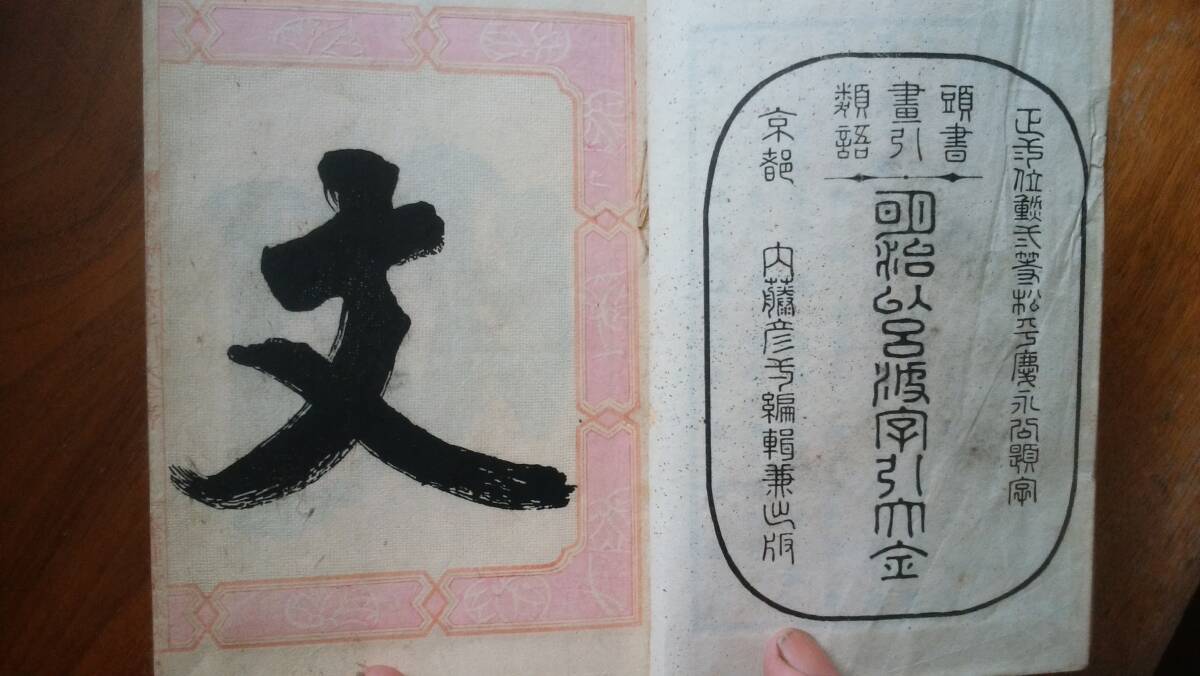 正弍位勲弍等松平慶永公題字
頭書
畫引
類語
明治以呂波字引大全
京都 内藤彦弌編輯兼出版
文